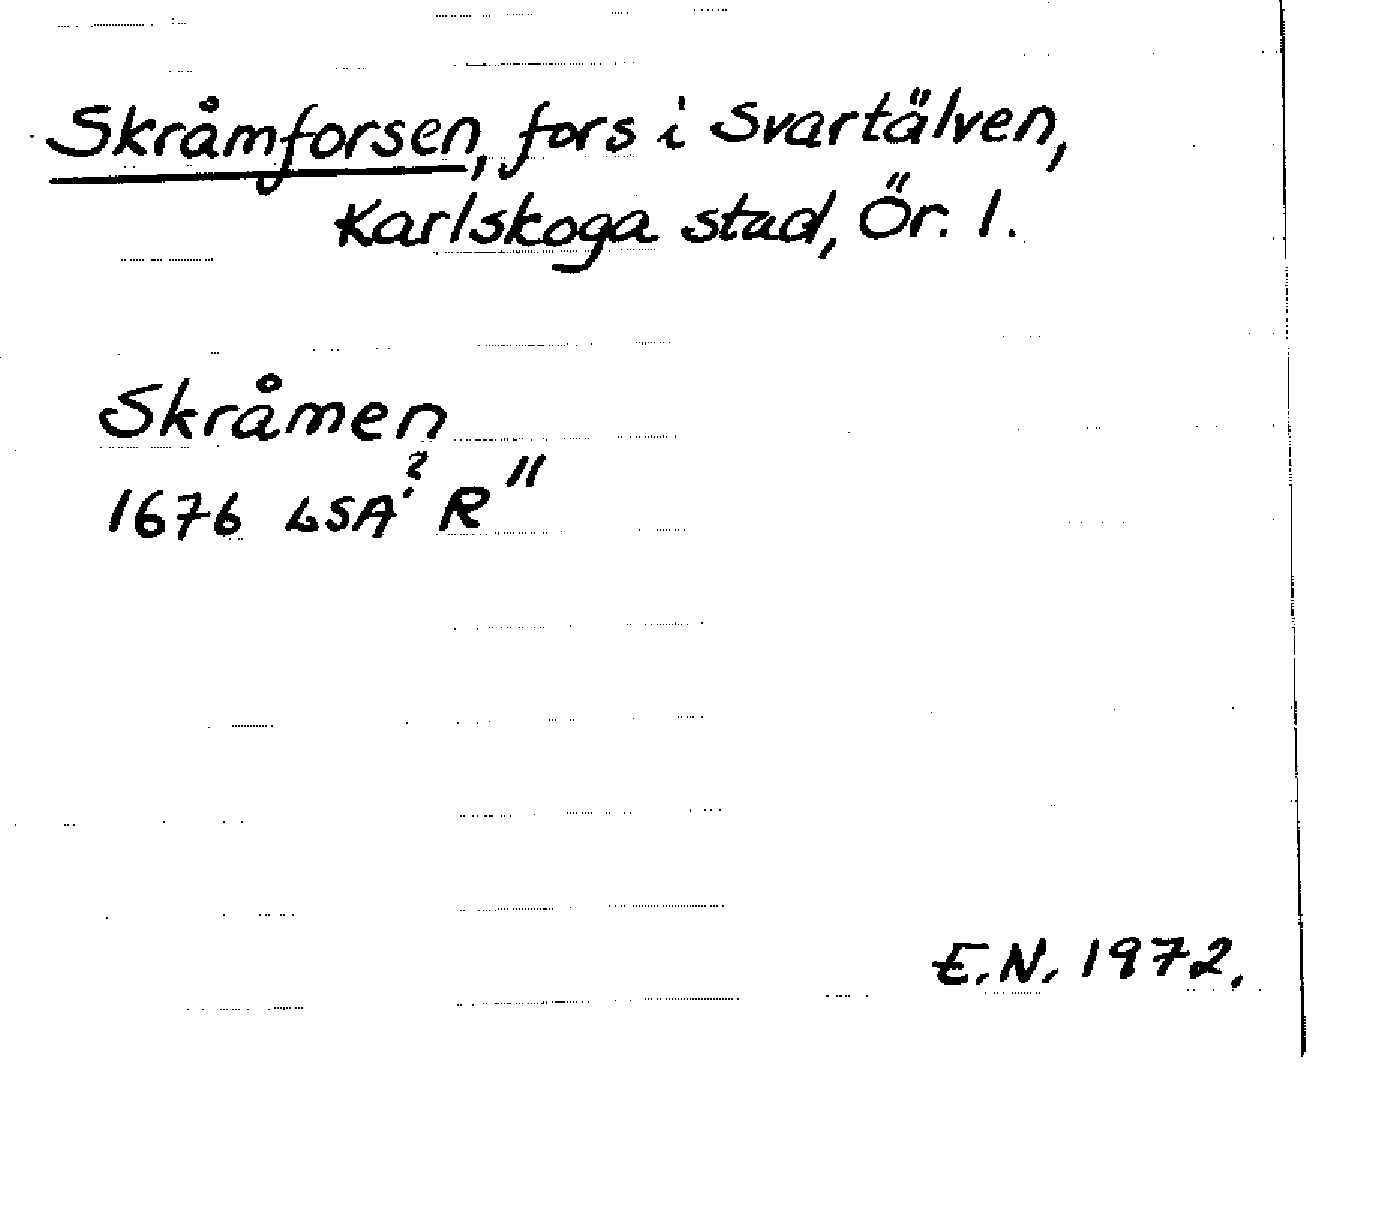 Skråmforsen, fors i Svartälven,
Karlskoga stad, Ör. l.
Skråmen
1676 LSA? R"
E.N. 1972.